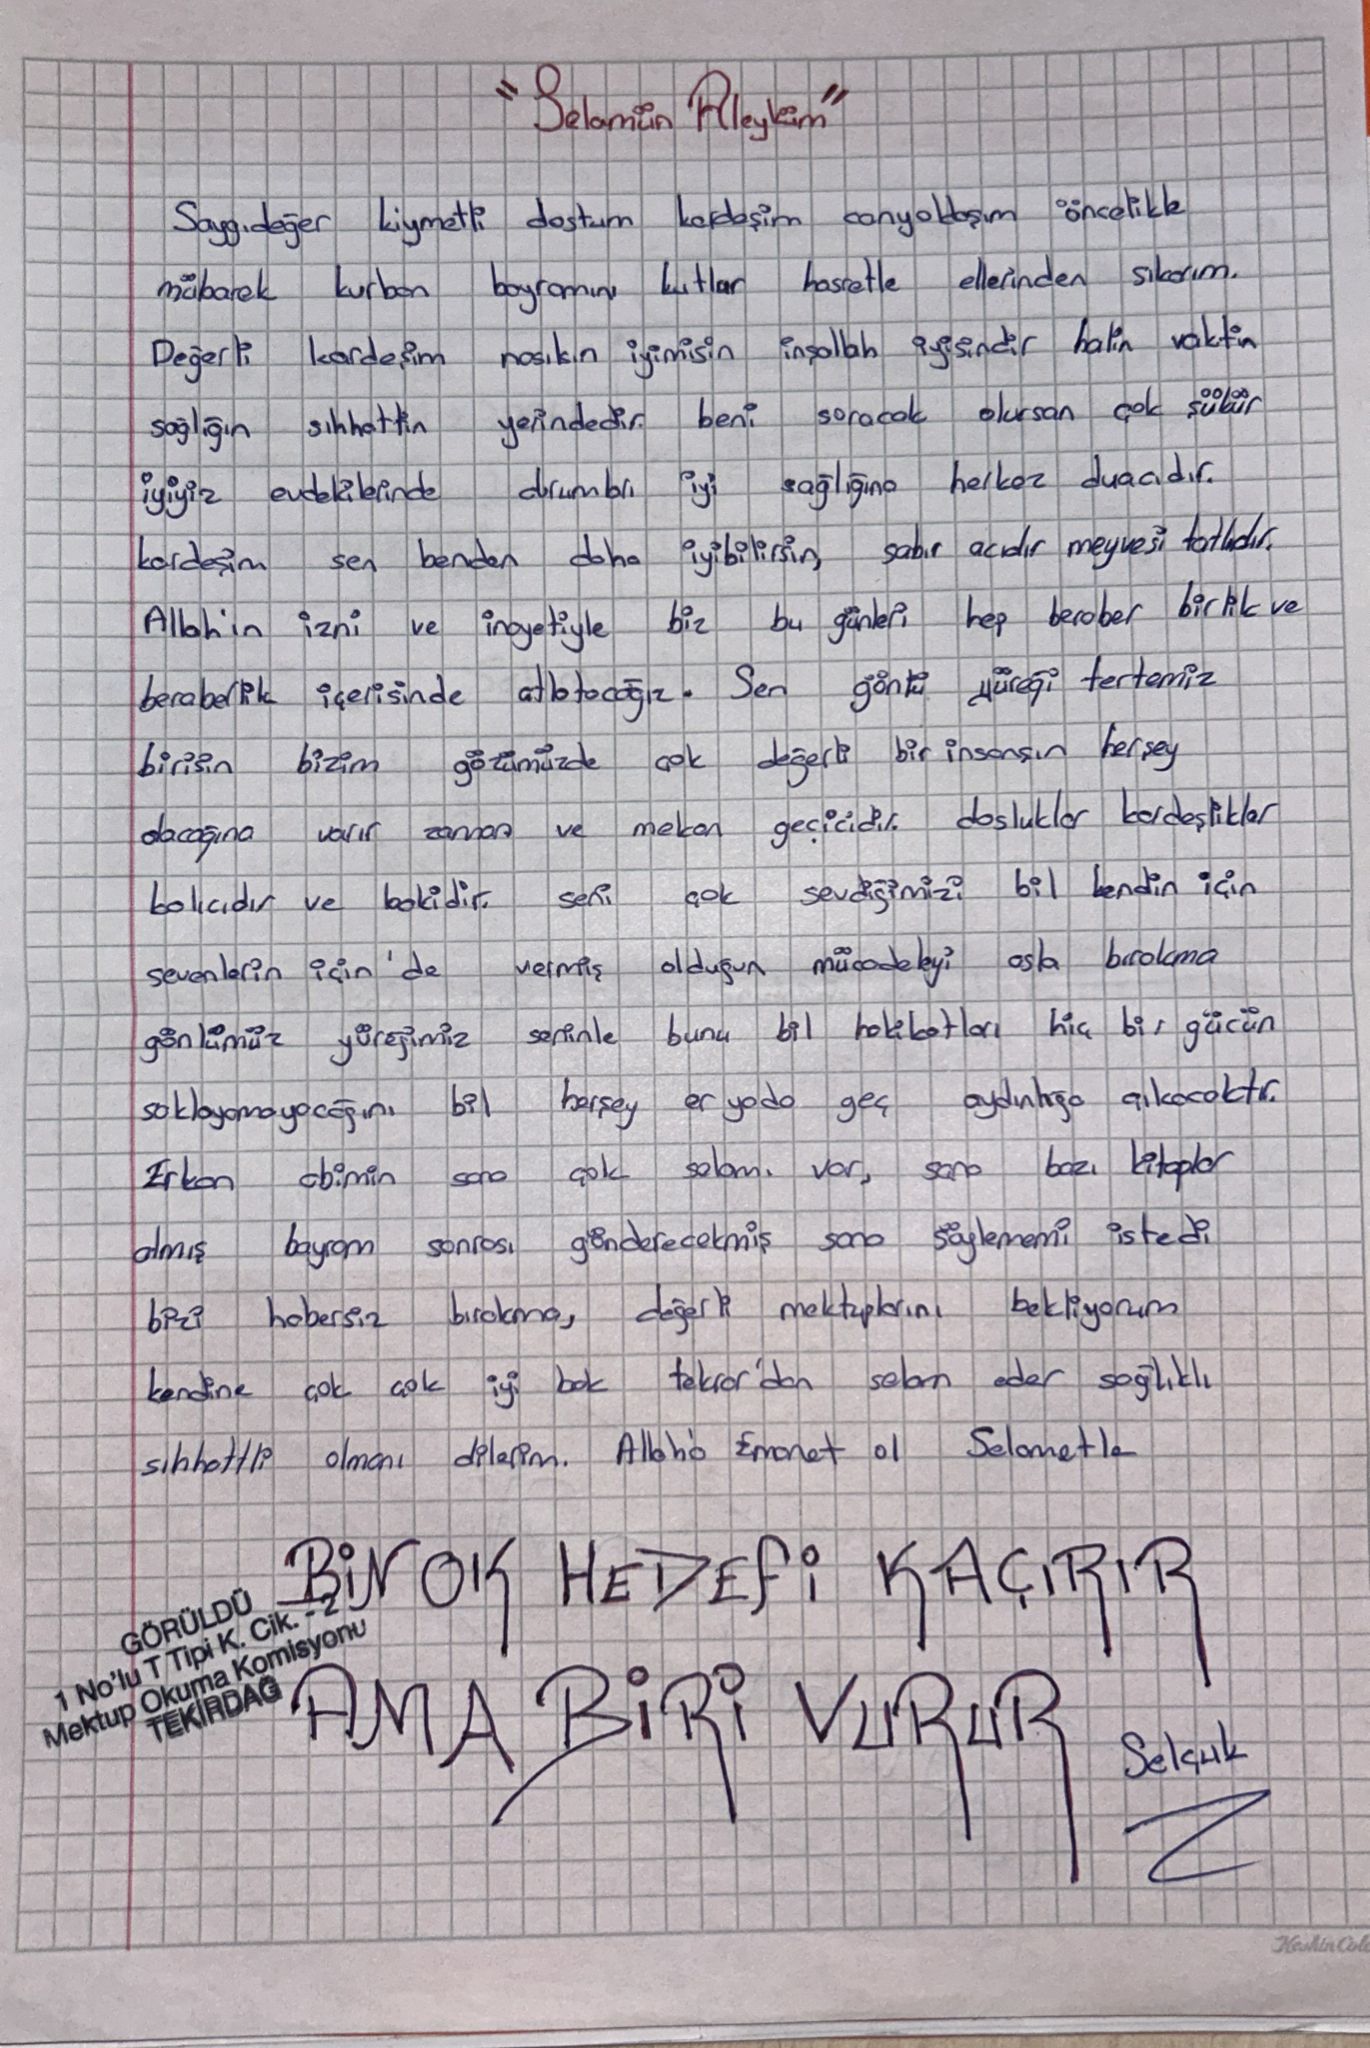 "Selamün Aleyküm"
Saygıdeğer kıymetli dostum kardeşim canyoldaşım öncelikle
mübarek kurban bayramını kutlar hasretle ellerinden sıkarım.
Değerli kardeşim nasıkın iyimisin inşallah iyisindir halin vaktin
sağlığın sıhhattin yerindedir. beni soracak olursan çok şükür
iyiyiz evdekilerinde durumları iyi sağlığına herkez duacıdır.
kardeşim sen benden daha iyibilirsin, sabır acıdır meyvesi tatlıdır.
Allah'ın izni ve inayetiyle biz bu günleri hep beraber birlik ve
beraberlik içerisinde atlatacağız. Sen gönlü yüreği tertemiz
birisin bizim gözümüzde çok değerli bir insansın herşey
olacağına varır zaman ve mekan geçicidir. dosluklar kardeşlikler
kalıcıdır ve bakidir. seni çok sevdiğimizi bil kendin için
sevenlerin için'de vermiş olduğun mücadeleyi asla bırakma
gönlümüz yüreğimiz seninle bunu bil hakikatları hiç bir gücün
saklayamayacağını bil herşey er yada geç aydınlığa çıkacaktır.
Erkan abimin sana çok selamı var, sana bazı kitaplar
almış bayram sonrası gönderecekmiş sana söylememi istedi
bizi habersiz bırakma, değerli mektuplarını bekliyorum
kendine çok çok iyi bak tekrar'dan selam eder sağlıklı
sıhhattli olmanı dilerim. Allah'a Emanet ol Selametle
BİN OK HEDEFİ KAÇIRIR
AMA BİRİ VURUR
GÖRÜLDÜ
1 No'lu T Tipi K. Cik. - 2
Mektup Okuma Komisyonu
TEKİRDAĞ
Selçuk